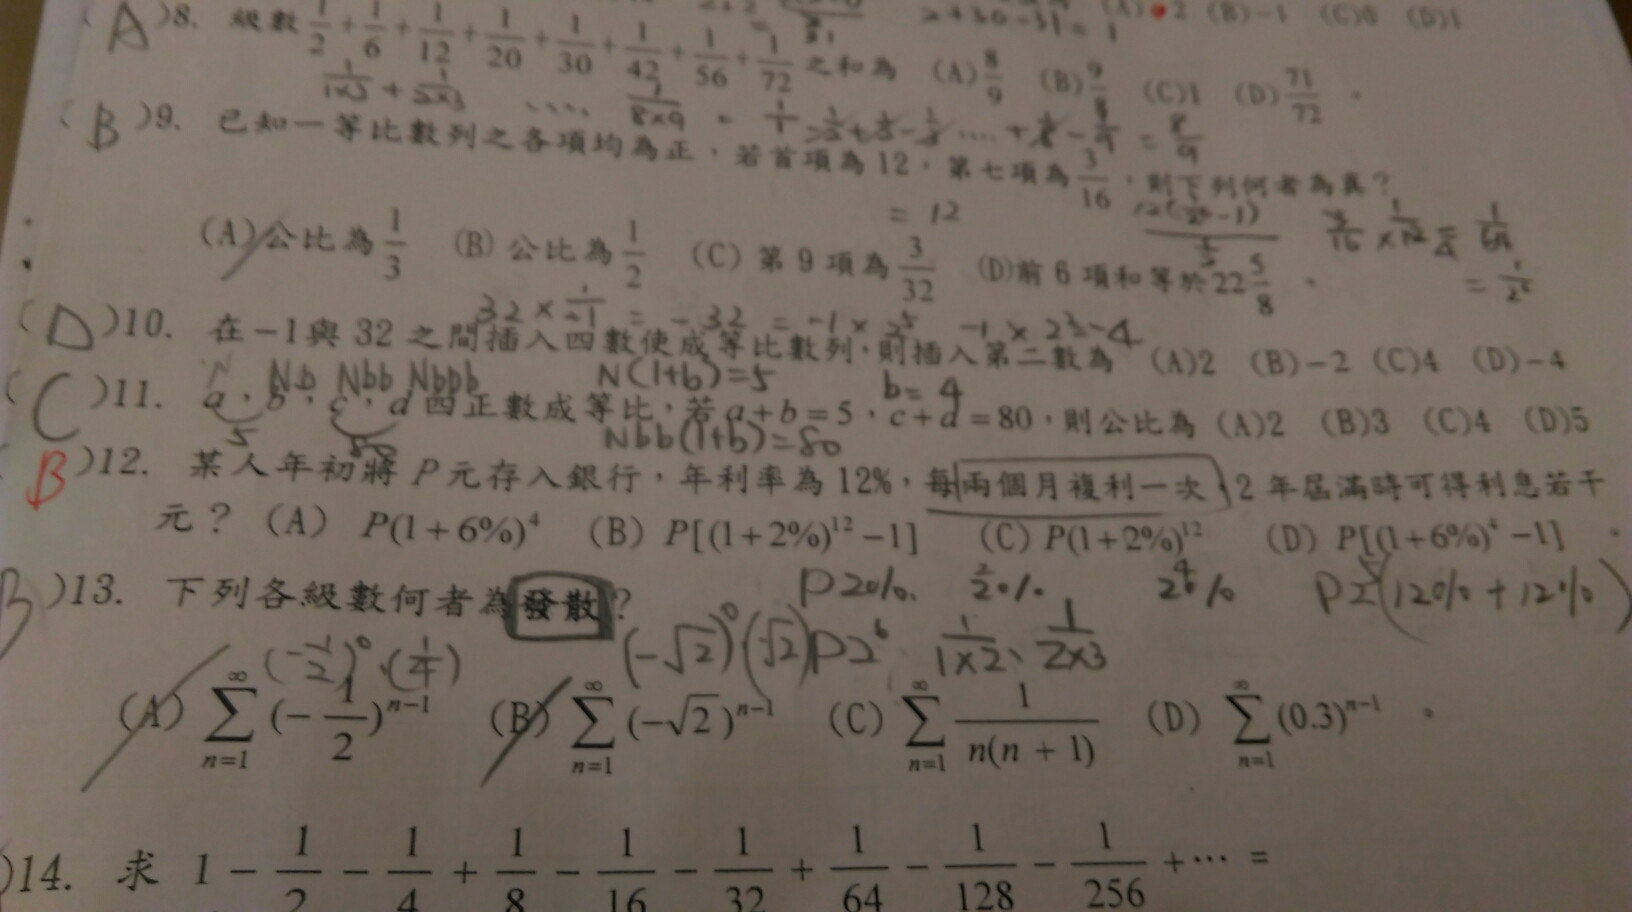 (A) 2 (B) -1 (C) 0 (D) 1
2+30-31 = 1
(A)8. 級數 1/2 + 1/6 + 1/12 + 1/20 + 1/30 + 1/42 + 1/56 + 1/72 之和為 (A) 8/9 (B) 9/8 (C) 1 (D) 71/72 。
(B)9. 已知一等比數列之各項均為正，若首項為 12，第七項為 3/16，則下列何者為真？
= 12
(A) 公比為 1/3 (B) 公比為 1/2 (C) 第 9 項為 3/32 (D) 前 6 項和等於 22 5/8 。
32 × 1/-1 = -32 = -1 × 2⁵ -1 × 2² = -4
(D)10. 在 -1 與 32 之間插入四數使成等比數列，則插入第二數為 (A) 2 (B) -2 (C) 4 (D) -4
N Nb Nbb Nbbb N(1+b)=5 b=4
(C)11. a，b，c，d 四正數成等比，若 a+b=5，c+d=80，則公比為 (A) 2 (B) 3 (C) 4 (D) 5
5 80 Nbb(1+b)=80
(B)12. 某人年初將 P 元存入銀行，年利率為 12%，每兩個月複利一次，2 年屆滿時可得利息若干
元？ (A) P(1+6%)⁴ (B) P[(1+2%)¹²-1] (C) P(1+2%)¹² (D) P[(1+6%)⁴-1] 。
(B)13. 下列各級數何者為發散？
(-1/2)⁰ · (1/4) (-√2)⁰ (√2) 1/1×2、1/2×3
(A) ∑_{n=1}^{∞} (-1/2)^{n-1} (B) ∑_{n=1}^{∞} (-√2)^{n-1} (C) ∑_{n=1}^{∞} 1/n(n+1) (D) ∑_{n=1}^{∞} (0.3)^{n-1} 。
)14. 求 1 - 1/2 - 1/4 + 1/8 - 1/16 - 1/32 + 1/64 - 1/128 - 1/256 + ⋯ =